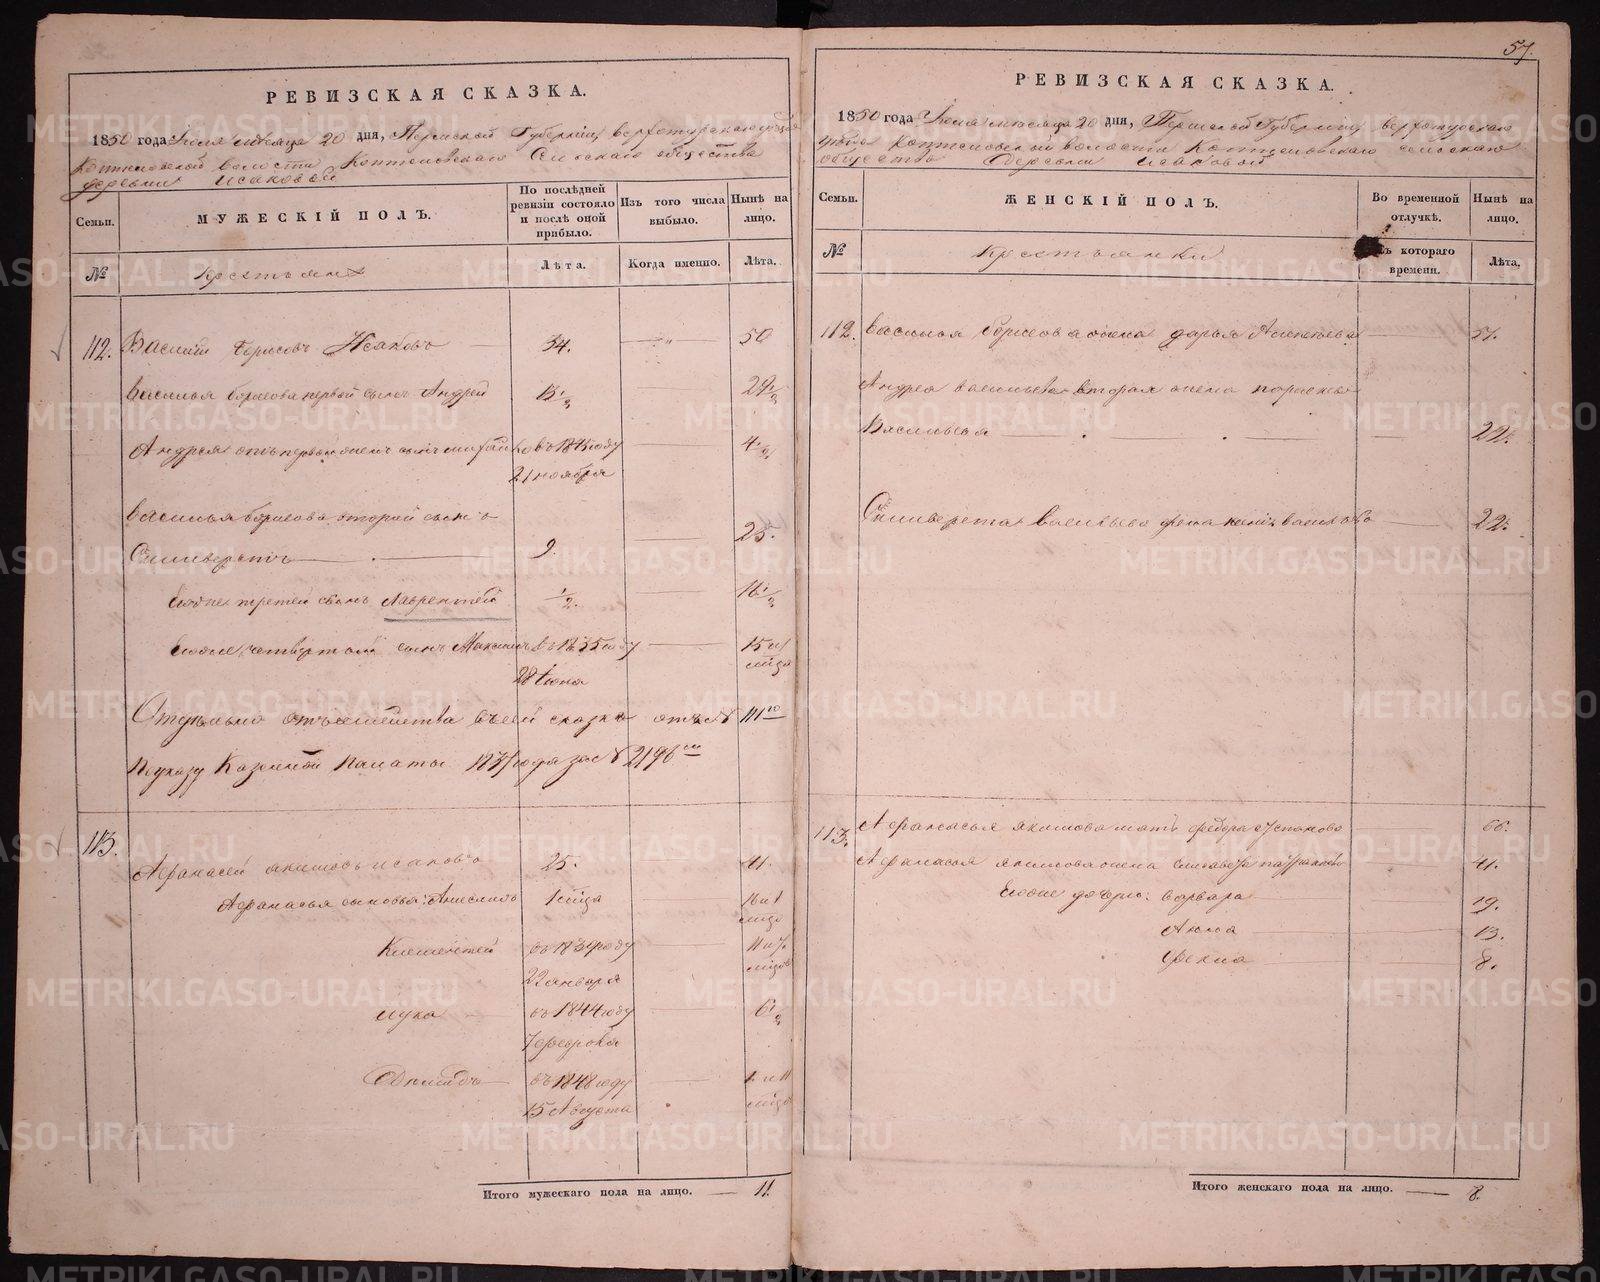 57.
РЕВИЗСКАЯ СКАЗКА.
1850 года Июля месяца 20 дня, Пермской Губернии, верхотурскаго уезда
Коптеловской волости Коптеловскаго Сельскаго общества
деревни Исаковой
Семьи.
МУЖЕСКІЙ ПОЛЪ.
По послѣдней ревизіи состояло и послѣ оной прибыло.
Изъ того числа выбыло.
Нынѣ на лицо.
№
Крестьяне
Лѣта.
Когда именно.
Лѣта.
112. Василій Борисовъ Исаковъ 34. 50
Василья Борисова первой сынъ Андрей 13 1/2 29 1/2
Андрея отъ первой жены сынъ въ 1845 году 4 1/2
21 ноября
Василья Борисова второй сынъ
Селиверстъ 9. 25.
ево же третей сынъ Лаврентей 1/2. 16 1/2
ево же четвертой сынъ Максимъ въ 1835 году 15 и
28 Июня
Отдельно отъ семейства въ сей сказке отъ № 111го
По указу Казенной Палаты за № 2196
113.
Афанасей Акимовъ Исаковъ 25. 41.
Афанасья сыновья: Анисимъ 1 мѣсца 16 и 1
Клементей въ 1839 году 11 и 7
22 января
Лука въ 1844 году 6 1/2
7 февраля
Въ 1848 году 1 и 11
15 Августа
Итого мужескаго пола на лицо. 11.
РЕВИЗСКАЯ СКАЗКА.
1850 года Июля месяца 20 дня, Пермской Губернии верхотурскаго
уезда Коптеловской волости Коптеловскаго сельскаго
общества Деревни Исаковой
Семьи.
ЖЕНСКІЙ ПОЛЪ.
Во временной отлучкѣ.
Нынѣ на лицо.
№
Крестьянки
Съ котораго времени.
Лѣта.
112. Василья Борисова жена Дарья 51.
Андрея Васильева вторая жена
Васильева 22.
Селиверста Васильева жена 22.
113. Афанасья Якимова мать Федора 66.
Афанасья Якимова жена 41.
Ево же дочери: Варвара 19.
Анна 13.
Фекла 8.
Итого женскаго пола на лицо. 8.